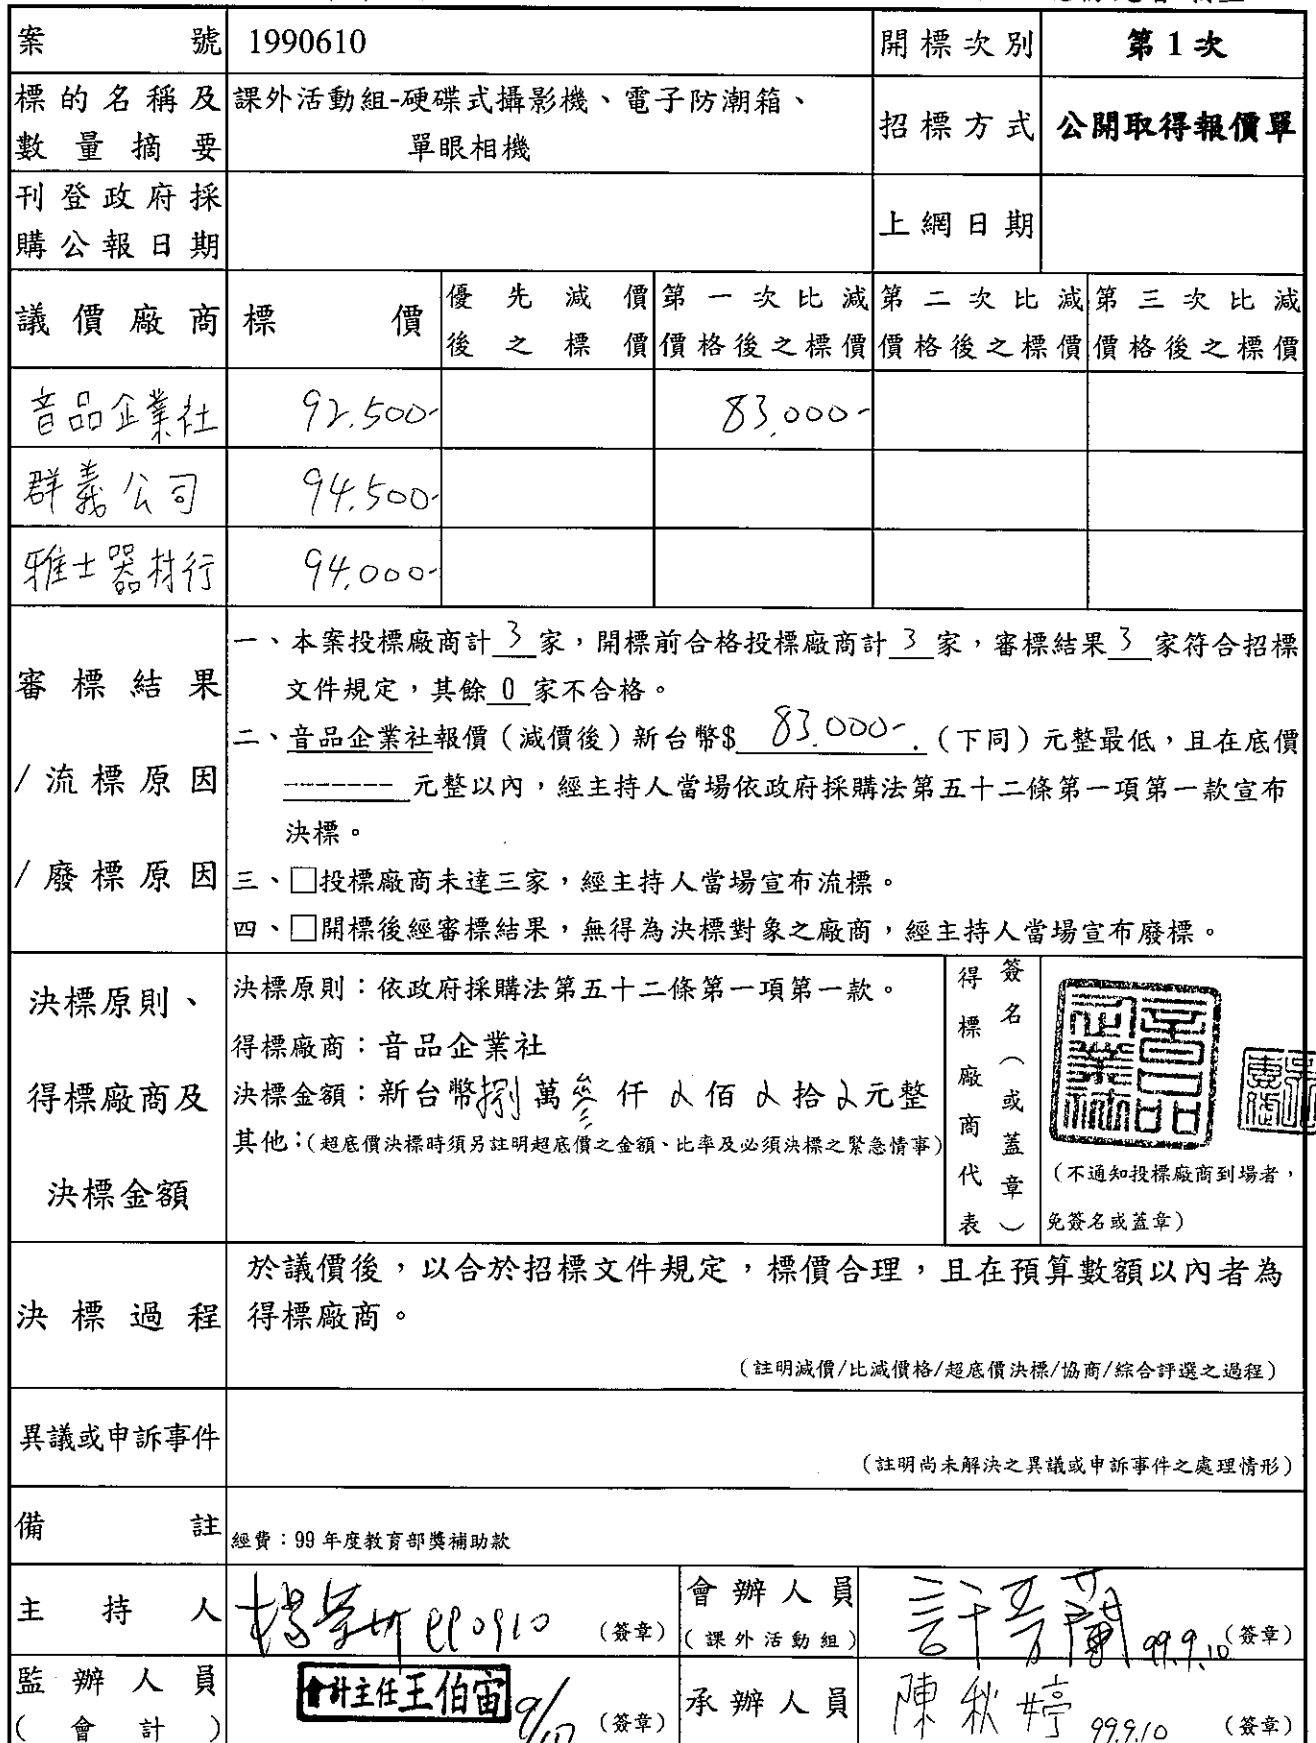 案號 1990610 開標次別 第1次
標的名稱及 課外活動組-硬碟式攝影機、電子防潮箱、
數量摘要 單眼相機 招標方式 公開取得報價單
刊登政府採
購公報日期 上網日期
議價廠商 標價 優先減價 第一次比減 第二次比減 第三次比減
後之標價 價格後之標價 價格後之標價 價格後之標價
音品企業社 92,500- 83,000-
群義公司 94,500-
雅士器材行 94,000-
審標結果
/流標原因
/廢標原因
一、本案投標廠商計 3 家,開標前合格投標廠商計 3 家,審標結果 3 家符合招標
文件規定,其餘 0 家不合格。
二、音品企業社報價(減價後)新台幣$ 83,000-.(下同)元整最低,且在底價
------- 元整以內,經主持人當場依政府採購法第五十二條第一項第一款宣布
決標。
三、□投標廠商未達三家,經主持人當場宣布流標。
四、□開標後經審標結果,無得為決標對象之廠商,經主持人當場宣布廢標。
決標原則、
得標廠商及
決標金額
決標原則:依政府採購法第五十二條第一項第一款。
得標廠商:音品企業社
決標金額:新台幣捌萬參仟 佰 拾 元整
其他:(超底價決標時須另註明超底價之金額、比率及必須決標之緊急情事)
得標廠商代表
簽名(或蓋章)
音品企業社
(不通知投標廠商到場者,
免簽名或蓋章)
決標過程
於議價後,以合於招標文件規定,標價合理,且在預算數額以內者為
得標廠商。
(註明減價/比減價格/超底價決標/協商/綜合評選之過程)
異議或申訴事件
(註明尚未解決之異議或申訴事件之處理情形)
備註 經費:99 年度教育部獎補助款
主持人 990910 (簽章) 會辦人員
(課外活動組) 許芳蘭 99.9.10 (簽章)
監辦人員
(會計) 會計主任王伯宙 9/10 (簽章) 承辦人員 陳秋婷 99.9.10 (簽章)